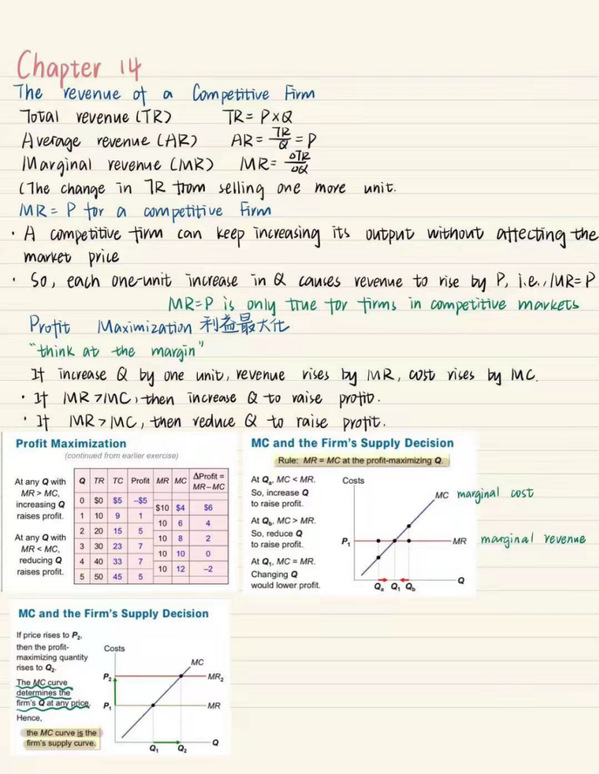 Chapter 14
The revenue of a Competitive Firm
Total revenue (TR) TR = P×Q
Average revenue (AR) AR = TR/Q = P
Marginal revenue (MR) MR = ΔTR/ΔQ
(The change in TR from selling one more unit.
MR = P for a competitive Firm
· A competitive firm can keep increasing its output without affecting the
market price
· So, each one-unit increase in Q causes revenue to rise by P, i.e., MR = P
MR=P is only true for firms in competitive markets
Profit Maximization 利益最大化
"think at the margin"
If increase Q by one unit, revenue rises by MR, cost rises by MC.
· If MR >MC, then increase Q to raise profit.
· If MR >MC, then reduce Q to raise profit.
Profit Maximization
(continued from earlier exercise)
At any Q with
MR > MC,
increasing Q
raises profit.
At any Q with
MR < MC,
reducing Q
raises profit.
Q TR TC Profit MR MC ΔProfit = MR–MC
0 $0 $5 –$5
$10 $4 $6
1 10 9 1
10 6 4
2 20 15 5
10 8 2
3 30 23 7
10 10 0
4 40 33 7
10 12 –2
5 50 45 5
MC and the Firm's Supply Decision
Rule: MR = MC at the profit-maximizing Q.
At Qa, MC < MR.
So, increase Q
to raise profit.
At Qb, MC > MR.
So, reduce Q
to raise profit.
At Q1, MC = MR.
Changing Q
would lower profit.
Costs
MC marginal cost
P1 MR marginal revenue
Q
Qa Q1 Qb
MC and the Firm's Supply Decision
If price rises to P2,
then the profit-
maximizing quantity
rises to Q2.
The MC curve
determines the
firm's Q at any price.
Hence,
the MC curve is the
firm's supply curve.
Costs
MC
P2 MR2
P1 MR
Q
Q1 Q2